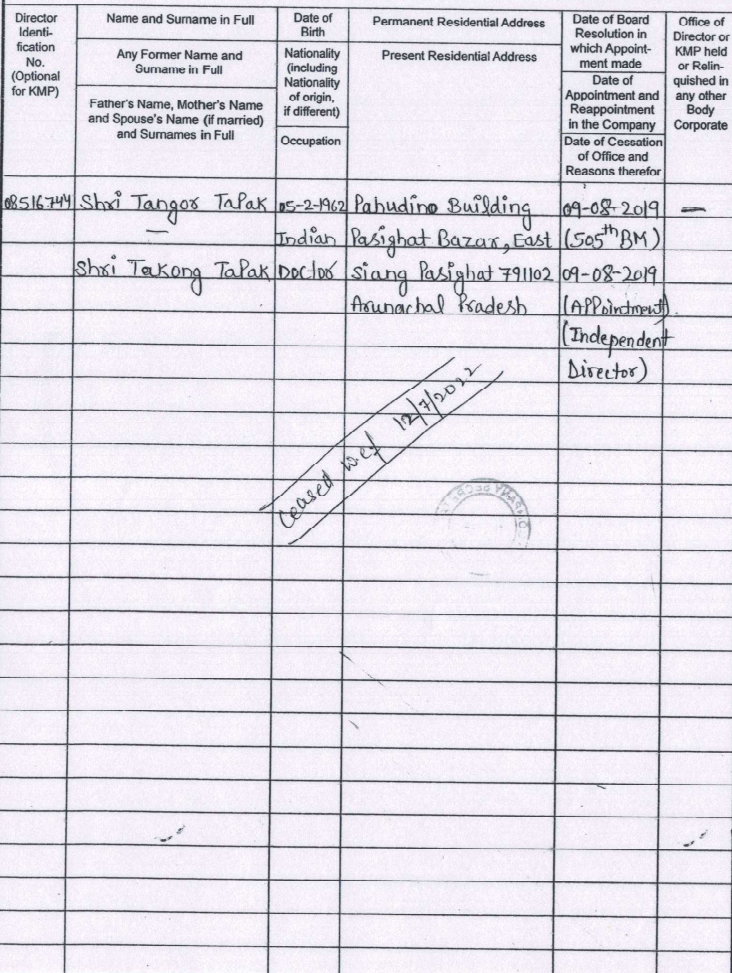 Director
Identi-
fication
No.
(Optional
for KMP)
Name and Surname in Full
Any Former Name and
Surname in Full
Father's Name, Mother's Name
and Spouse's Name (if married)
and Surnames in Full
Date of
Birth
Nationality
(including
Nationality
of origin,
if different)
Occupation
Permanent Residential Address
Present Residential Address
Date of Board
Resolution in
which Appoint-
ment made
Date of
Appointment and
Reappointment
in the Company
Date of Cessation
of Office and
Reasons therefor
Office of
Director or
KMP held
or Relin-
quished in
any other
Body
Corporate
08516744 Shri Tangor Tapak 05-2-1962 Pahudino Building 09-08-2019 —
— Indian Pasighat Bazar, East (505th BM)
Shri Takong Tapak Doctor siang Pasighat 791102 09-08-2019
Arunachal Pradesh (Appointment)
(Independent
Director)
Ceased w.ef 12/7/2022